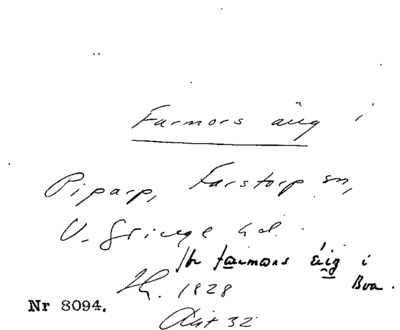 Farmors äng i
Piparp, Farstorp sn,
V. Göinge hd.
farmors äig i
Boa.
1928
Nr 8094.
32